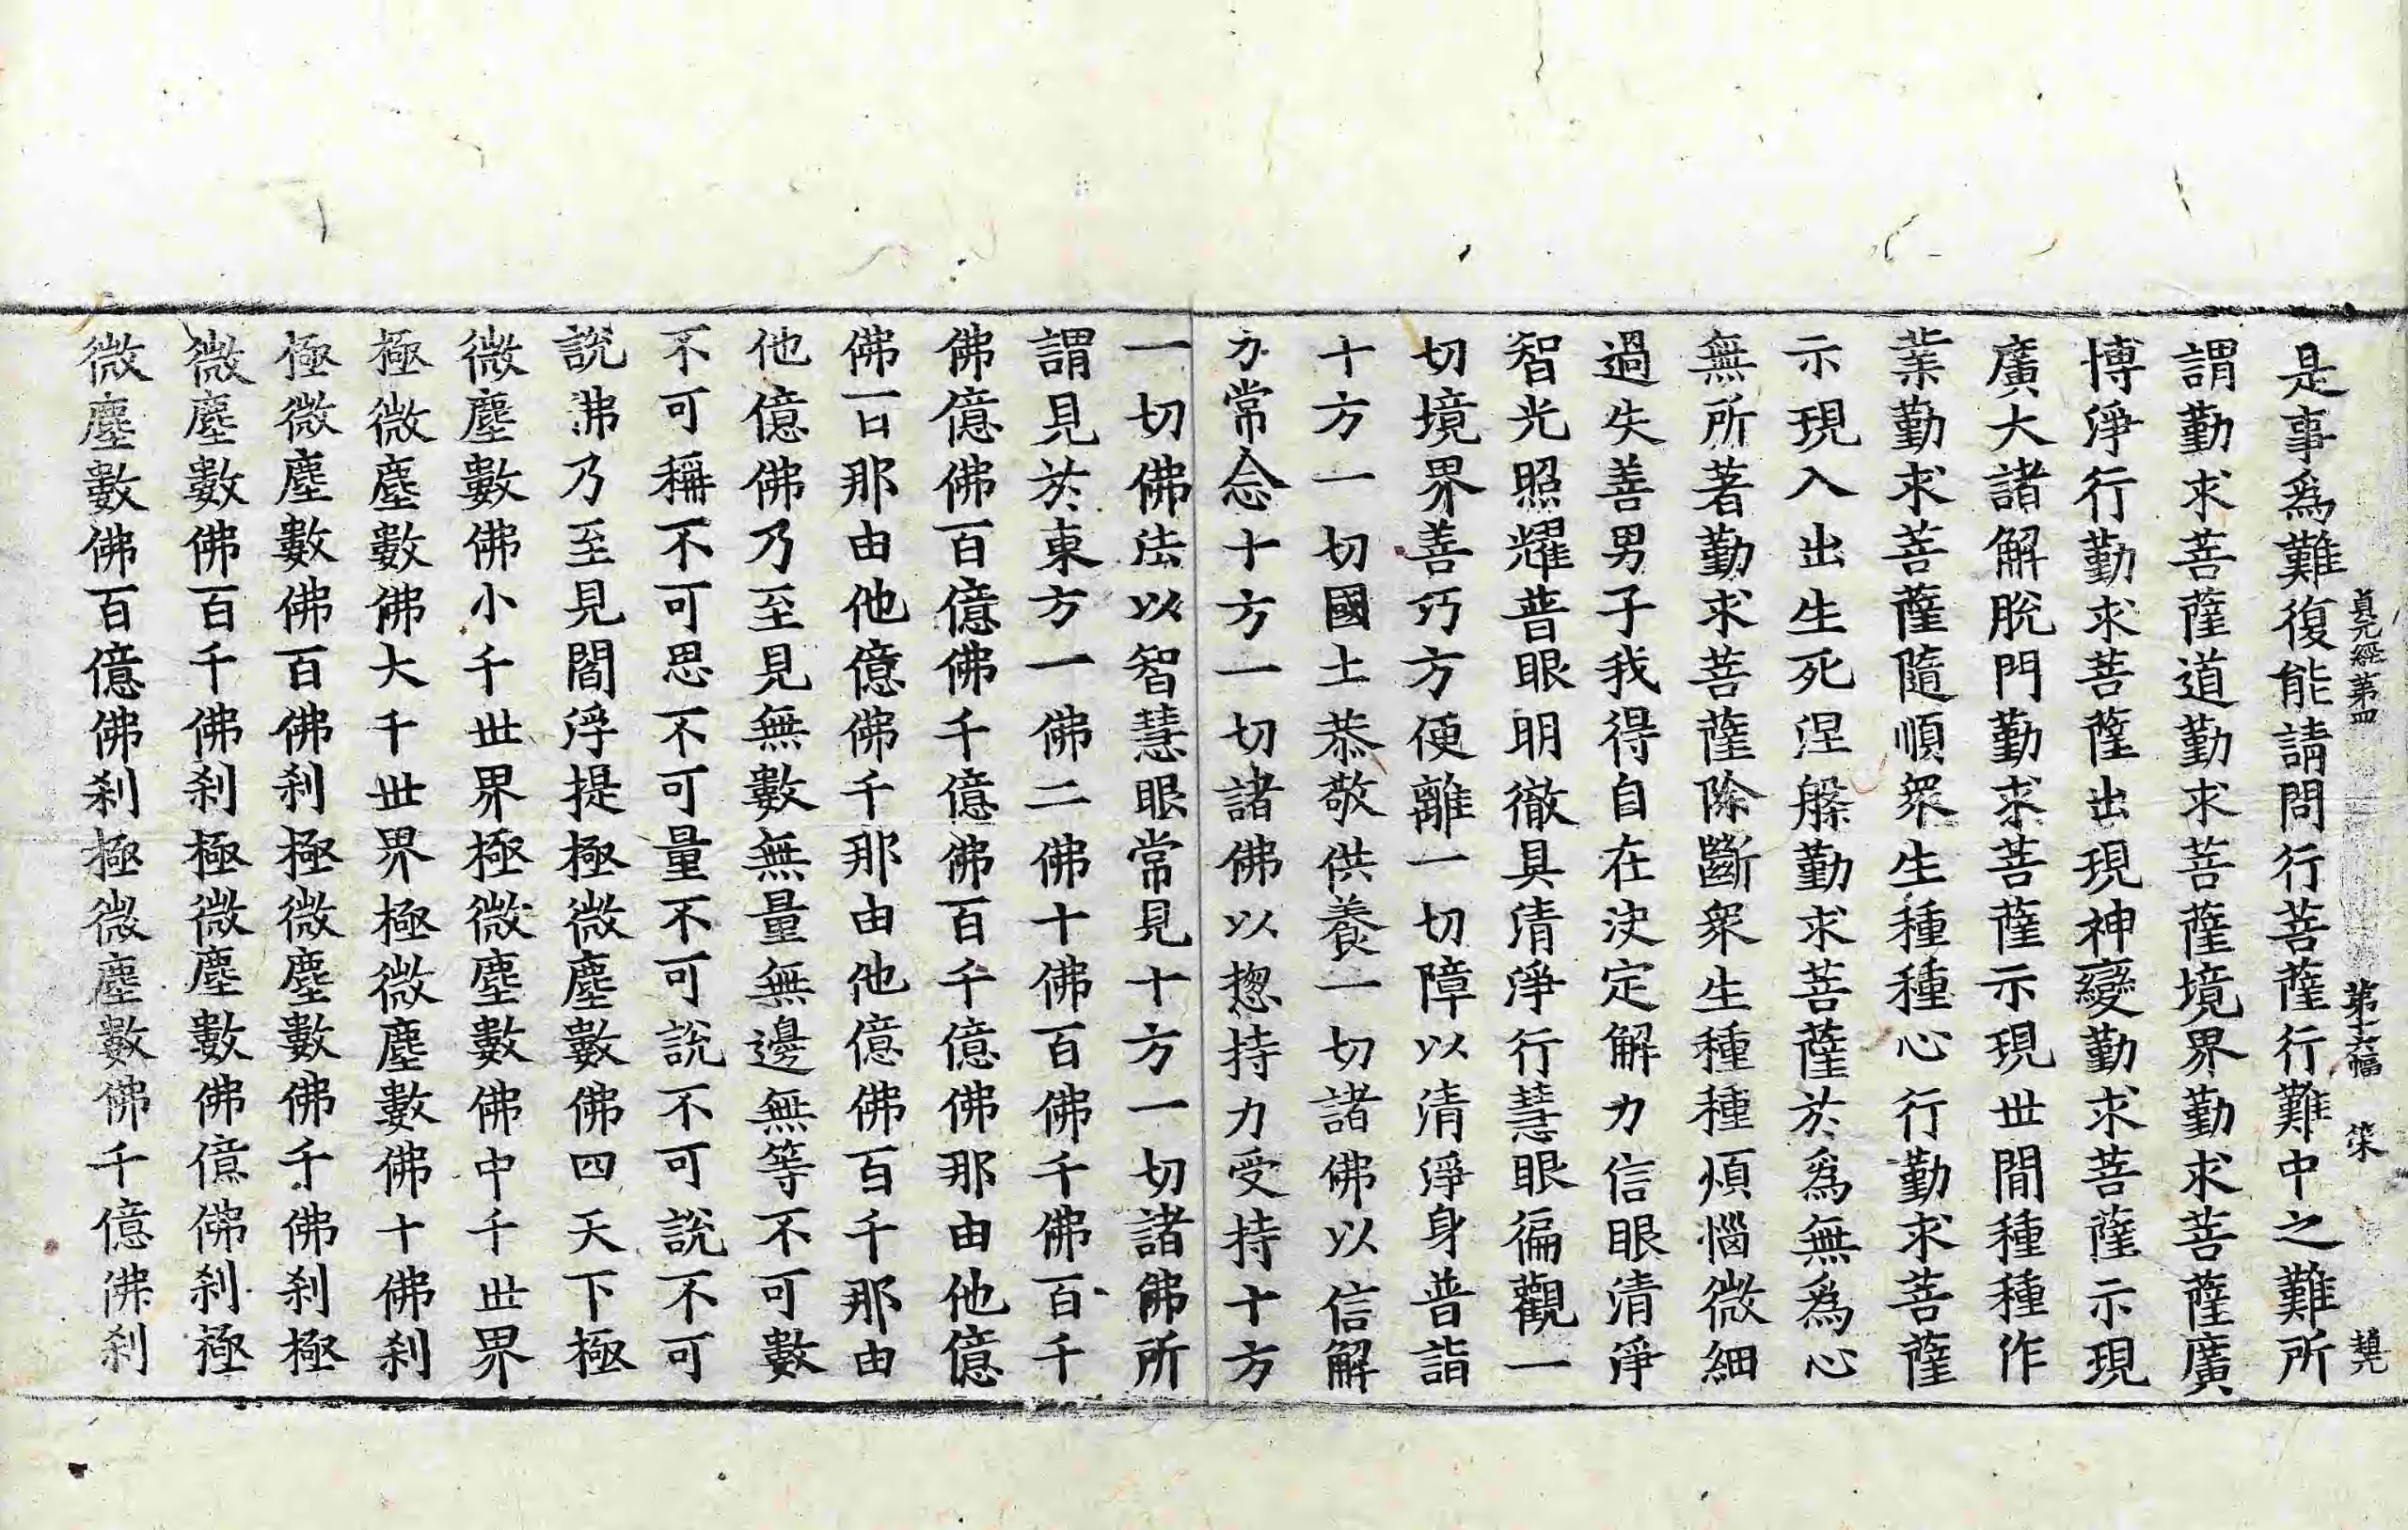 貞元經第四 第十六幅 染
是事爲難復能請問行菩薩行難中之難所
謂勤求菩薩道勤求菩薩境界勤求菩薩廣
博淨行勤求菩薩出現神變勤求菩薩示現
廣大諸解脫門勤求菩薩示現世間種種作
業勤求菩薩隨順衆生種種心行勤求菩薩
示現入出生死涅槃勤求菩薩於爲無爲心
無所著勤求菩薩除斷衆生種種煩惱微細
過失善男子我得自在決定解力信眼清淨
智光照耀普眼明徹具清淨行慧眼徧觀一
切境界善巧方便離一切障以清淨身普詣
十方一切國土恭敬供養一切諸佛以信解
力常念十方一切諸佛以摠持力受持十方
一切佛法以智慧眼常見十方一切諸佛所
謂見於東方一佛二佛十佛百佛千佛百千
佛億佛百億佛千億佛百千億佛那由他億
佛百那由他億佛千那由他億佛百千那由
他億佛乃至見無數無量無邊無等不可數
不可稱不可思不可量不可說不可說不可
說沸乃至見閻浮提極微塵數佛四天下極
微塵數佛小千世界極微塵數佛中千世界
極微塵數佛大千世界極微塵數佛十佛刹
極微塵數佛百佛刹極微塵數佛千佛刹極
微塵數佛百千佛刹極微塵數佛億佛刹極
微塵數佛百億佛刹極微塵數佛千億佛刹